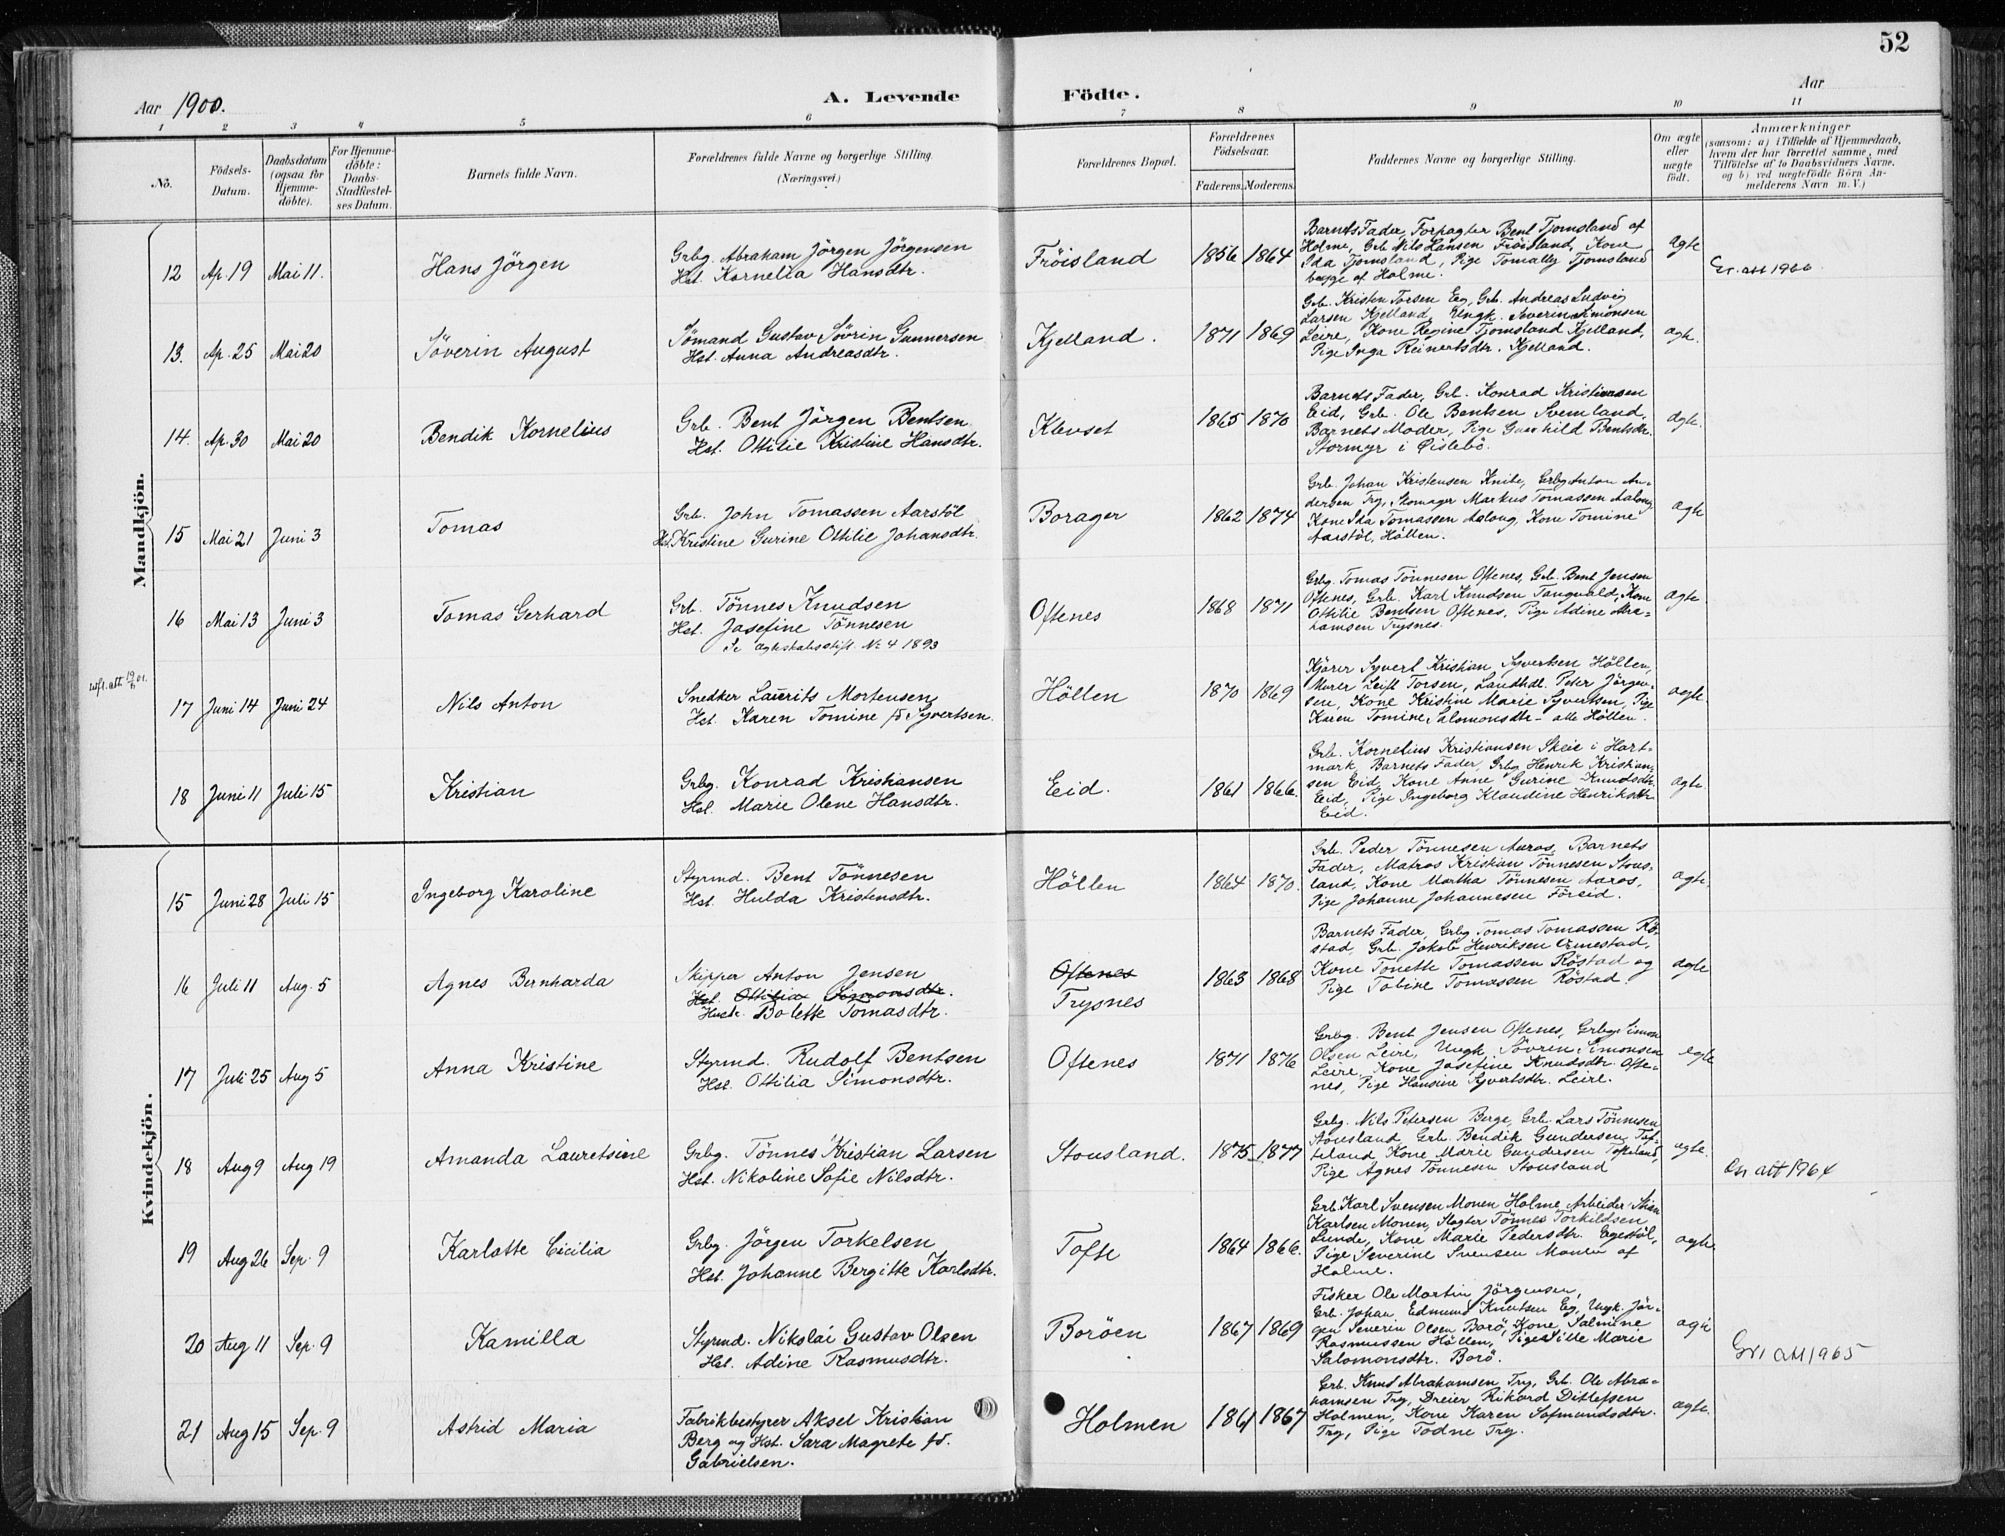 52
Aar 1900.
A. Levende Födte.
Aar
1 2 3 4 5 6 7 8 9 10 11
No.
Födsels-
Datum.
Daabsdatum
(ogsaa for
Hjemme-
döbte).
For Hjemme-
döbte:
Daabs-
Stadfæstel-
ses Datum.
Barnets fulde Navn.
Forældrenes fulde Navne og borgerlige Stilling
(Næringsvei.)
Forældrenes Bopæl.
Forældrenes
Födselsaar.
Faderens. Moderens.
Faddernes Navne og borgerlige Stilling.
Om ægte
eller
uægte
födt.
Anmærkninger
(saasom: a) i Tilfælde af Hjemmedaab,
hvem der har forrettet samme, med
Tilföielse af to Daabsvidners Navne,
og b) ved uægtefödte Börn An-
melderens Navn m. V.)
Mandkjön.
12 Ap. 19 Mai 11. Hans Jörgen
Grbg. Abraham Jörgen Jörgensen
Hst. Kornelia Hansdtr.
Fröisland 1856 1864
Barnets Fader, Forpagter Bent Tjomsland af
Holme, Grb. Nils Hansen Fröisland, Kone
Ida Tjomsland, Pige Tomally Tjomsland
begge af Holme.
ægte
Gr. att 1966
13. Ap. 25 Mai 20 Söverin August
Sömand Gustav Sövrin Gunnersen
Hst. Anna Andreasdtr.
Kjelland. 1871 1869
Grb. Kristen Torsen Eeg, Grb. Andreas Ludvig
Larsen Kjelland, Ungk. Severin Simonsen
Leire, Kone Regine Tjomsland Kjelland,
Pige Inga Reinertsdtr. Kjelland.
ægte.
14. Ap. 30 Mai 20 Bendik Kornelius
Grb. Bent Jörgen Bentsen
Hst. Ottilie Kristine Hansdtr.
Klevset 1865 1870
Barnets Fader, Grb. Konrad Kristiansen
Eid, Grb. Ole Bentsen Sveinland,
Barnets Moder, Pige Gunhild Bentsdtr.
Stormyr i Öislebö.
ægte.
15 Mai 21 Juni 3 Tomas
Grb. John Tomassen Aarstöl
Hst. Kristine Gurine Ottilie Johansdtr.
Borager 1862 1874
Grb. Johan Kristensen Knibe, Grbg Anton An-
dersen Try, Skomager Markus Tomassen Aalong,
Kone Ida Tomassen Aalong, Kone Tomine
Aarstöl, Höllen.
ægte
16 Mai 13 Juni 3 Tomas Gerhard
Grb. Tönnes Knudsen
Hst. Josefine Tönnesen
Se ægteskabsstift. No 4 1893
Oftenes 1868 1871
Grbg. Tomas Tönnesen Oftenes, Grb. Bent Jensen
Oftenes, Grb. Karl Knudsen Tangvald, Kone
Ottilie Bentsen Oftenes, Pige Adine Abra-
hamsen Trysnes.
ægte
17 Juni 14 Juni 24 Nils Anton
Snedker Laurits Mortensen
Hst. Karen Tomine f. Syvertsen.
Höllen 1870 1869
Kjörer Syvert Kristian Syvertsen Höllen,
Murer Leift Torsen, Landhdl. Peter Jörgen-
sen, Kone Kristine Marie Syvertsen, Pige
Karen Tomine Salomonsdtr - alle Höllen.
ægte
18 Juni 11 Juli 15 Kristian
Grbg. Konrad Kristiansen
Hst. Marie Olene Hansdtr.
Eid. 1861 1866.
Grb. Kornelius Kristiansen Skeie i Hart-
mark, Barnets Fader, Grbg Henrik Kristian-
sen Eid, Kone Anne Gurine Knudsdtr.
Eid, Pige Ingeborg Klaudine Henriksdtr
Eid.
ægte.
Kvindekjön.
15 Juni 28 Juli 15 Ingeborg Karoline
Styrmd. Bent Tönnesen
Hst. Hulda Kristensdtr.
Höllen 1864 1870.
Grb. Peder Tönnesen Aaros, Barnets
Fader, Matros Kristian Tönnesen Stous-
land, Kone Martha Tönnesen Aaros,
Pige Johanne Johannesen Föreid.
ægte.
16 Juli 11 Aug. 5 Agnes Bernharda
Skipper Anton Jensen
Hst. Ottilia Simonsdtr.
Hustr. Bolette Tomasdtr.
Oftenes
Trysnes
1863 1868
Barnets Fader, Grbg Tomas Tomassen Rö-
stad, Grb. Jakob Henriksen Ormestad,
Kone Tonette Tomassen Röstad og
Pige Tobine Tomassen Röstad.
ægte
17 Juli 25 Aug 5 Anna Kristine
Styrmd. Rudolf Bentsen
Hst. Ottilia Simonsdtr.
Oftenes 1871 1876
Grbg. Bent Jensen Oftenes, Grbg. Simon
Olsen Leire, Ungk. Sövren Simonsen
Leire, Kone Josefine Knudsdtr. Ofte-
nes, Pige Hansine Syvertsdtr. Leire.
ægte
18 Aug 9 Aug 19 Amanda Lauretsine
Grbg. Tönnes Kristian Larsen
Hst. Nikoline Sofie Nilsdtr.
Stousland. 1875 1877
Grbg. Nils Petersen Berge, Grb. Lars Tönnesen
Stousland, Grb. Bendik Gundersen Tof-
teland, Kone Marie Gundersen Tofteland,
Pige Agnes Tönnesen Stousland
ægte.
Gr. att 1964
19 Aug 26 Sep. 9 Karlotte Cicilia
Grbg. Jörgen Torkelsen
Hst. Johanne Bergitte Karlsdtr.
Tofte 1864 1866.
Grb. Karl Svensen Monen Holme, Arbeider
Karlsen Monen, Slagter Tönnes Torkildsen
Lunde, Kone Marie Pedersdtr. Egestöl,
Pige Severine Svensen Monen af
Holme.
ægte.
20 Aug 11 Sep. 9 Kamilla
Styrmd. Nikolai Gustav Olsen
Hst. Adine Rasmusdtr.
Boröen 1867 1869
Fisker Ole Martin Jörgensen,
Grb. Johan Edmund Knutsen Eg, Ungk. Jör-
gen Severin Olsen Borö, Kone Salmine
Rasmussen Höllen, Pige Sille Marie
Salomonsdtr. Borö.
ægte
Gr. att 1965
21 Aug 15 Sep. 9 Astrid Maria
Fabrikbestyrer Aksel Kristian
Berg og Hst. Sara Magrete fd.
Gabrielsen.
Holmen 1861 1867
Grb. Knud Abrahamsen Try, Grb. Ole Abra-
hamsen Try, Dreier Rikard Ditlefsen
Holmen, Kone Karen Sofmundsdtr.
Try, Pige Todne Try.
ægte.